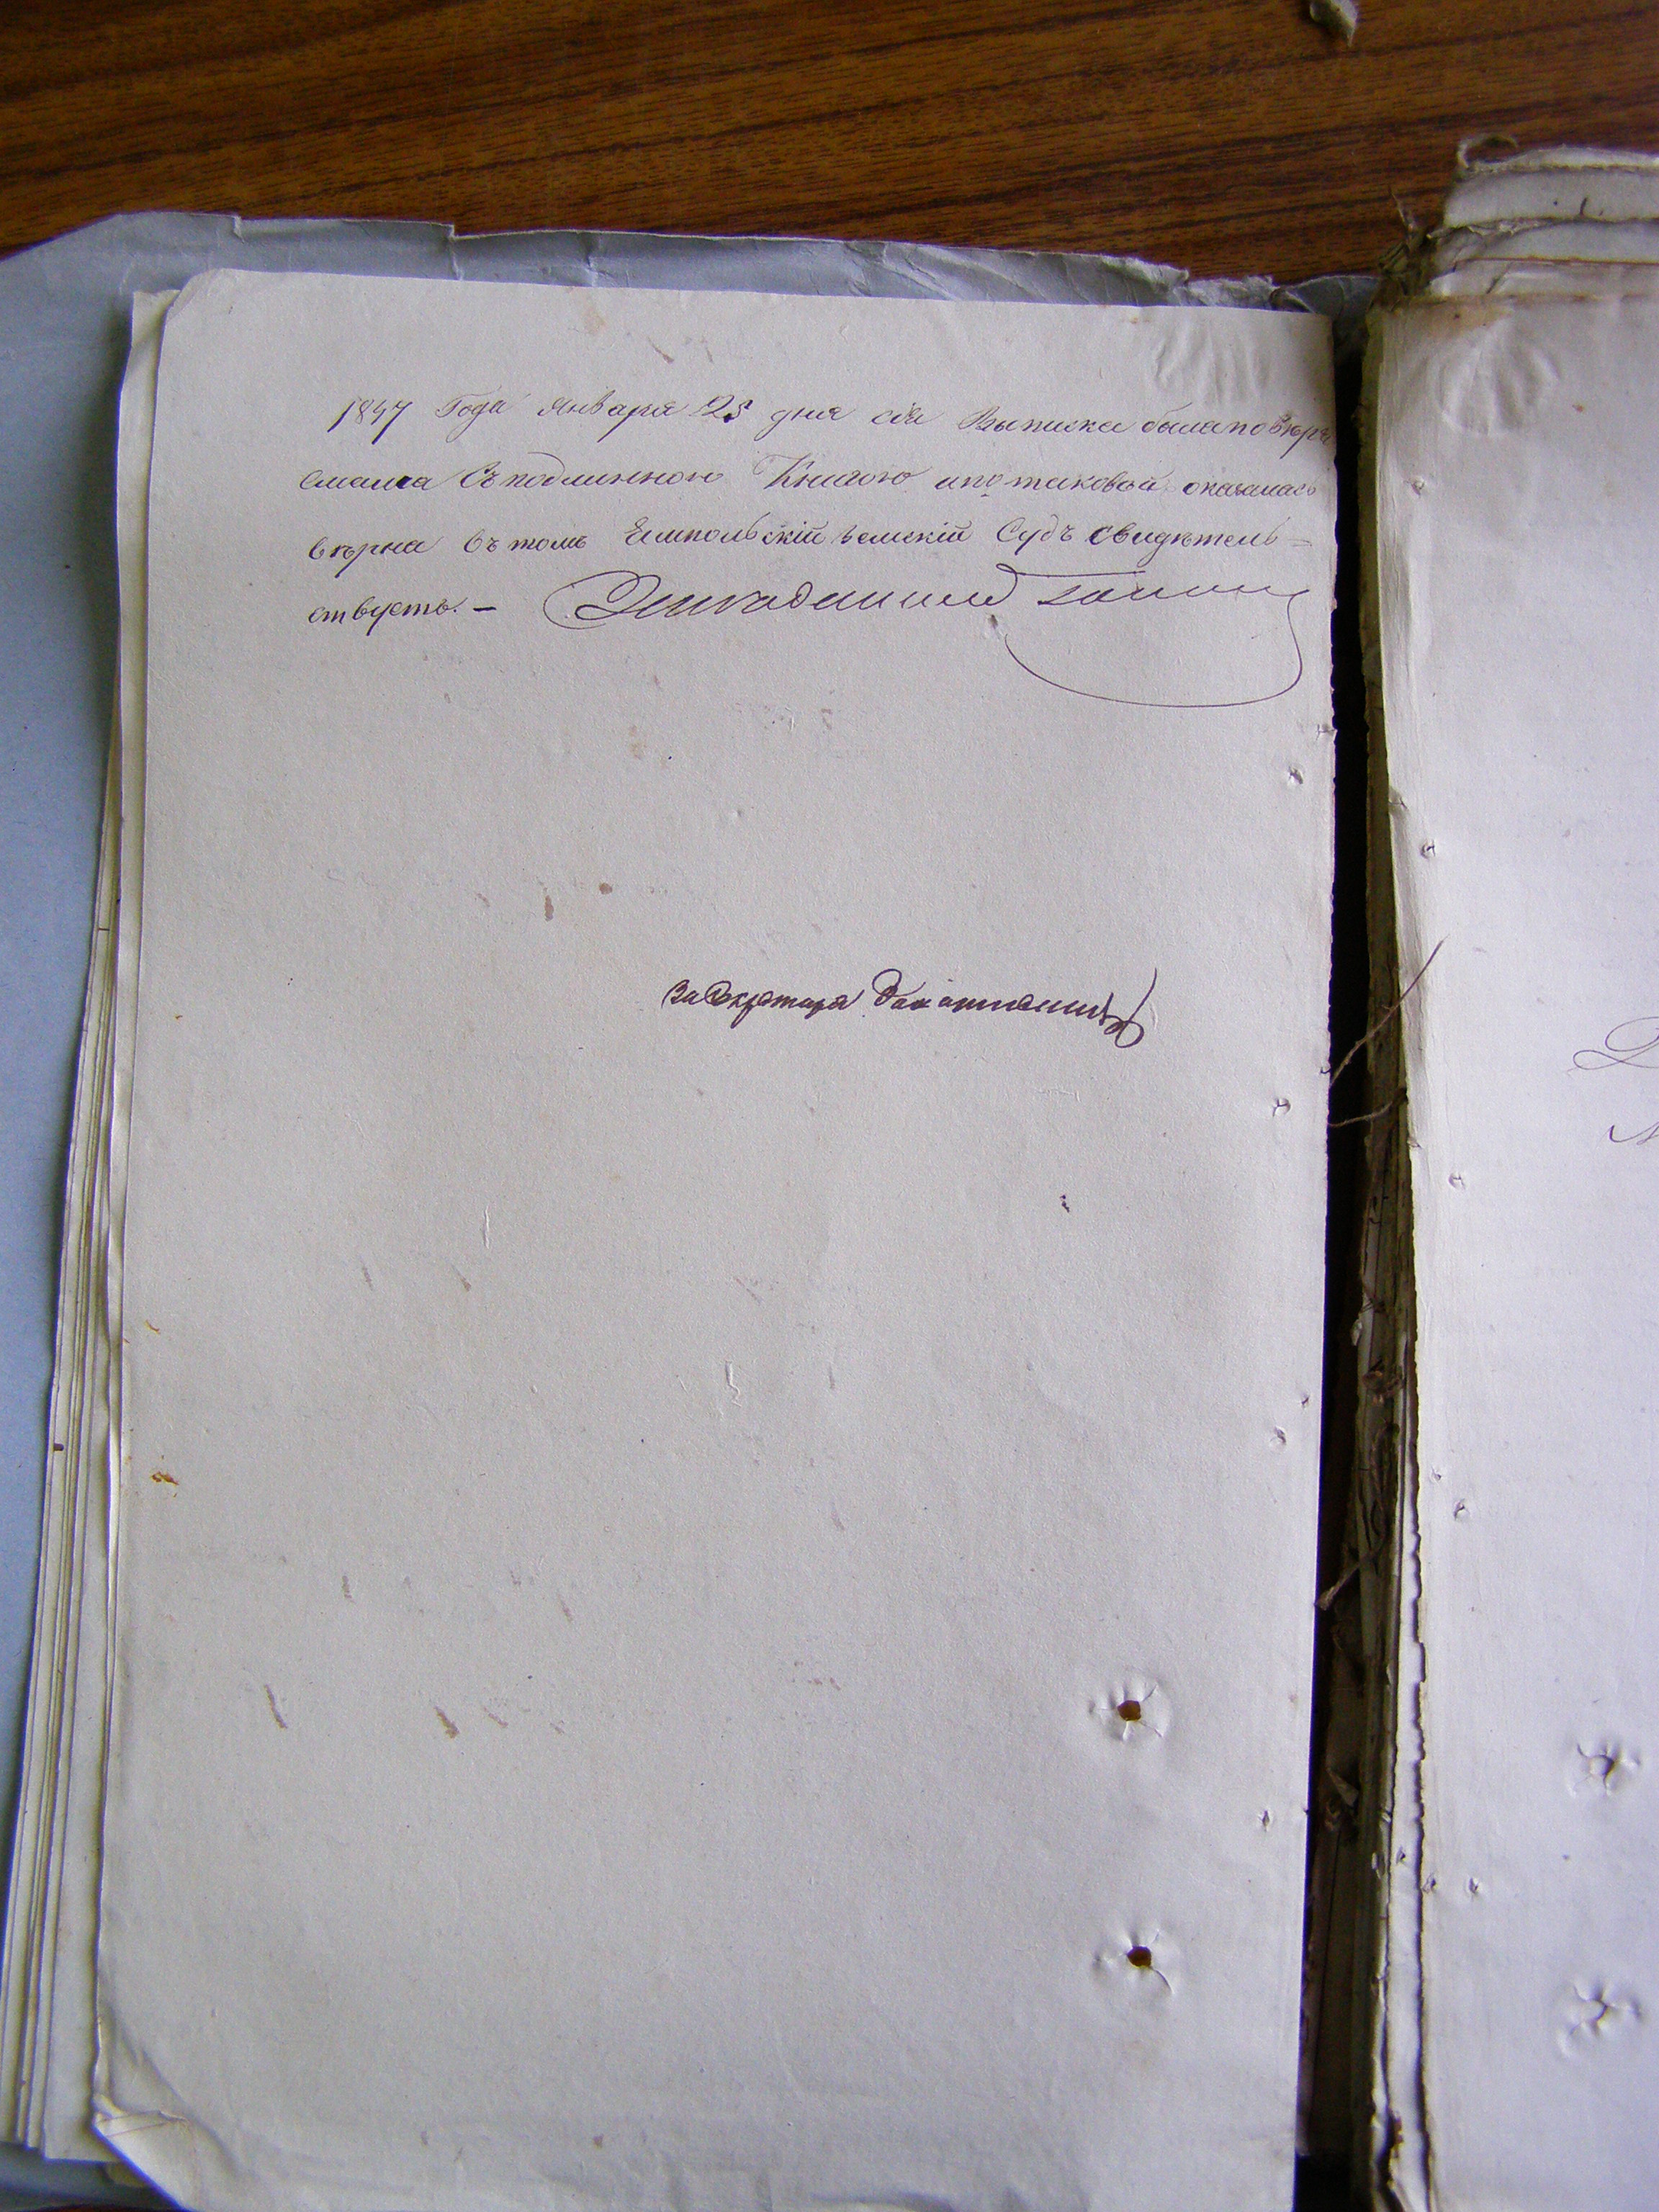 1847 Года Января 25 дня сія Выписка была повѣря
емая съ подлинною Книгою ипотиковой оказалась
вѣрна въ томъ Ямпольскій Земскій Судъ свидѣтель=
ствуетъ. –
За Секретаря